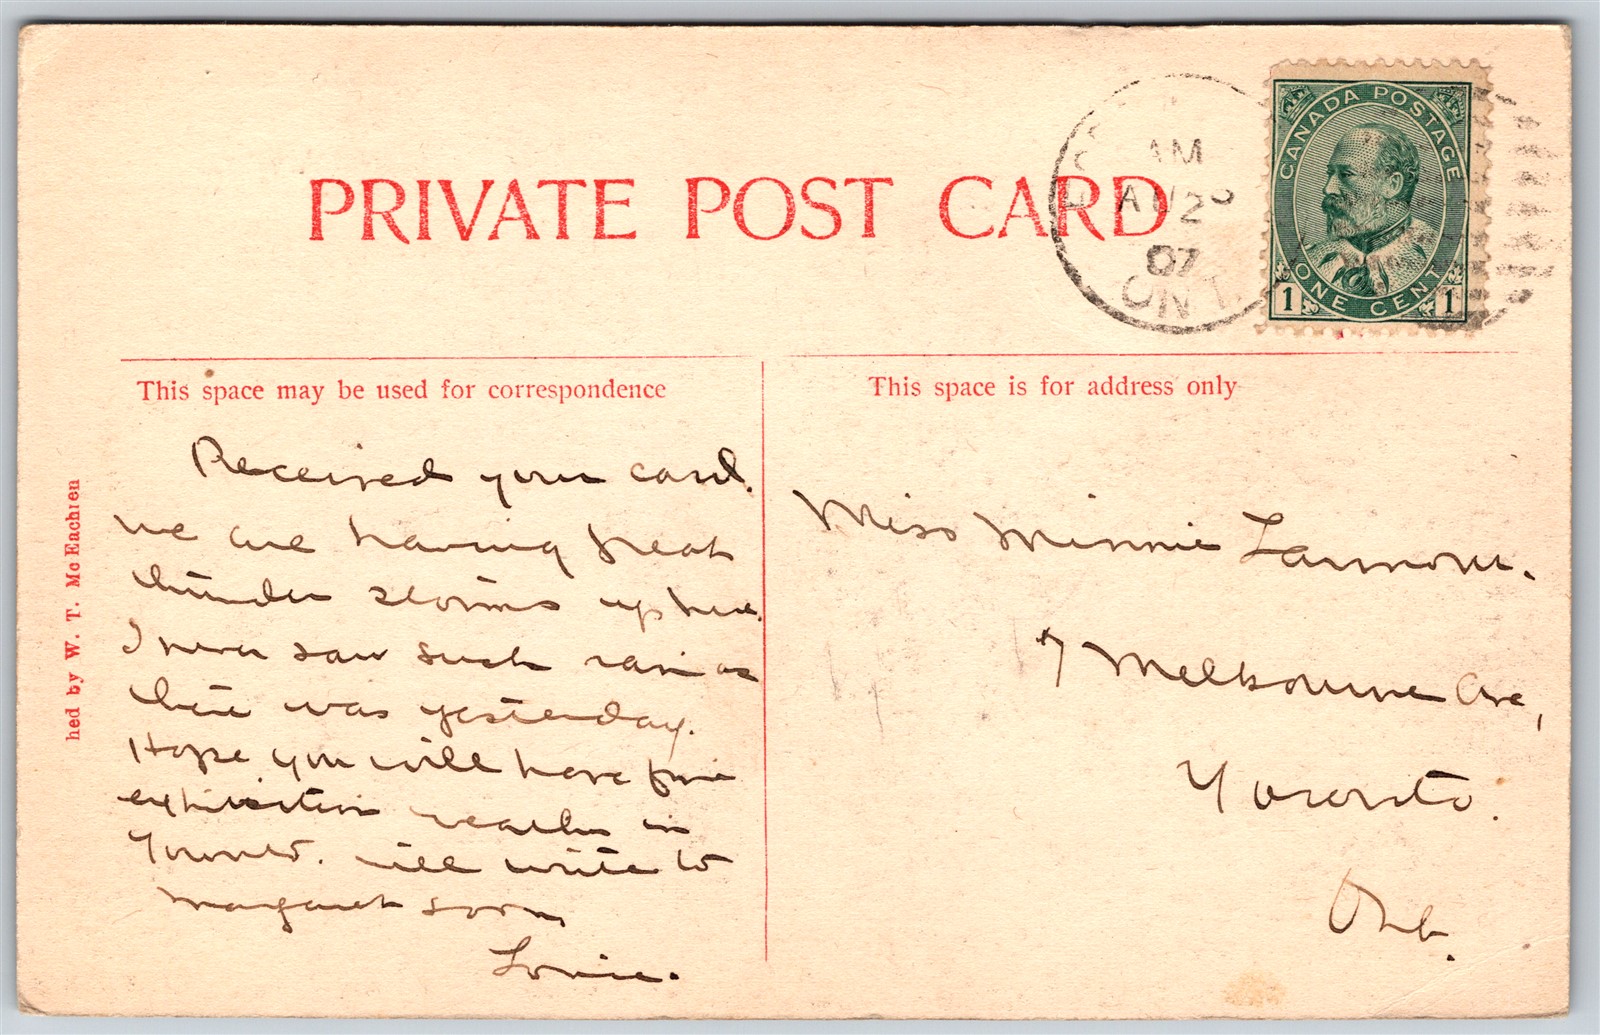 PRIVATE POST CARD
AM
AU 2
07
ONT.
CANADA POSTAGE
ONE CENT
1 1
This space may be used for correspondence
This space is for address only
Received your card.
we are having great
thunder storms up here.
I never saw such rain as
there was yesterday.
Hope you will have fine
exhibition weather in
Toronto. will write to
Margaret soon
Miss Minnie
7 Melbourne Ave,
Toronto.
Ont.
hed by W. T. McEachren